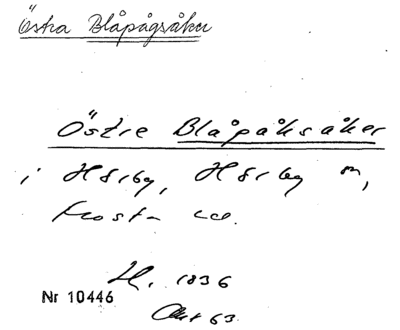 Östra Blåpågsåker
Östre Blåpåksåker
i Hörby, Hörby sn,
Frosta
H. 1836
Nr 10446
Akt 63